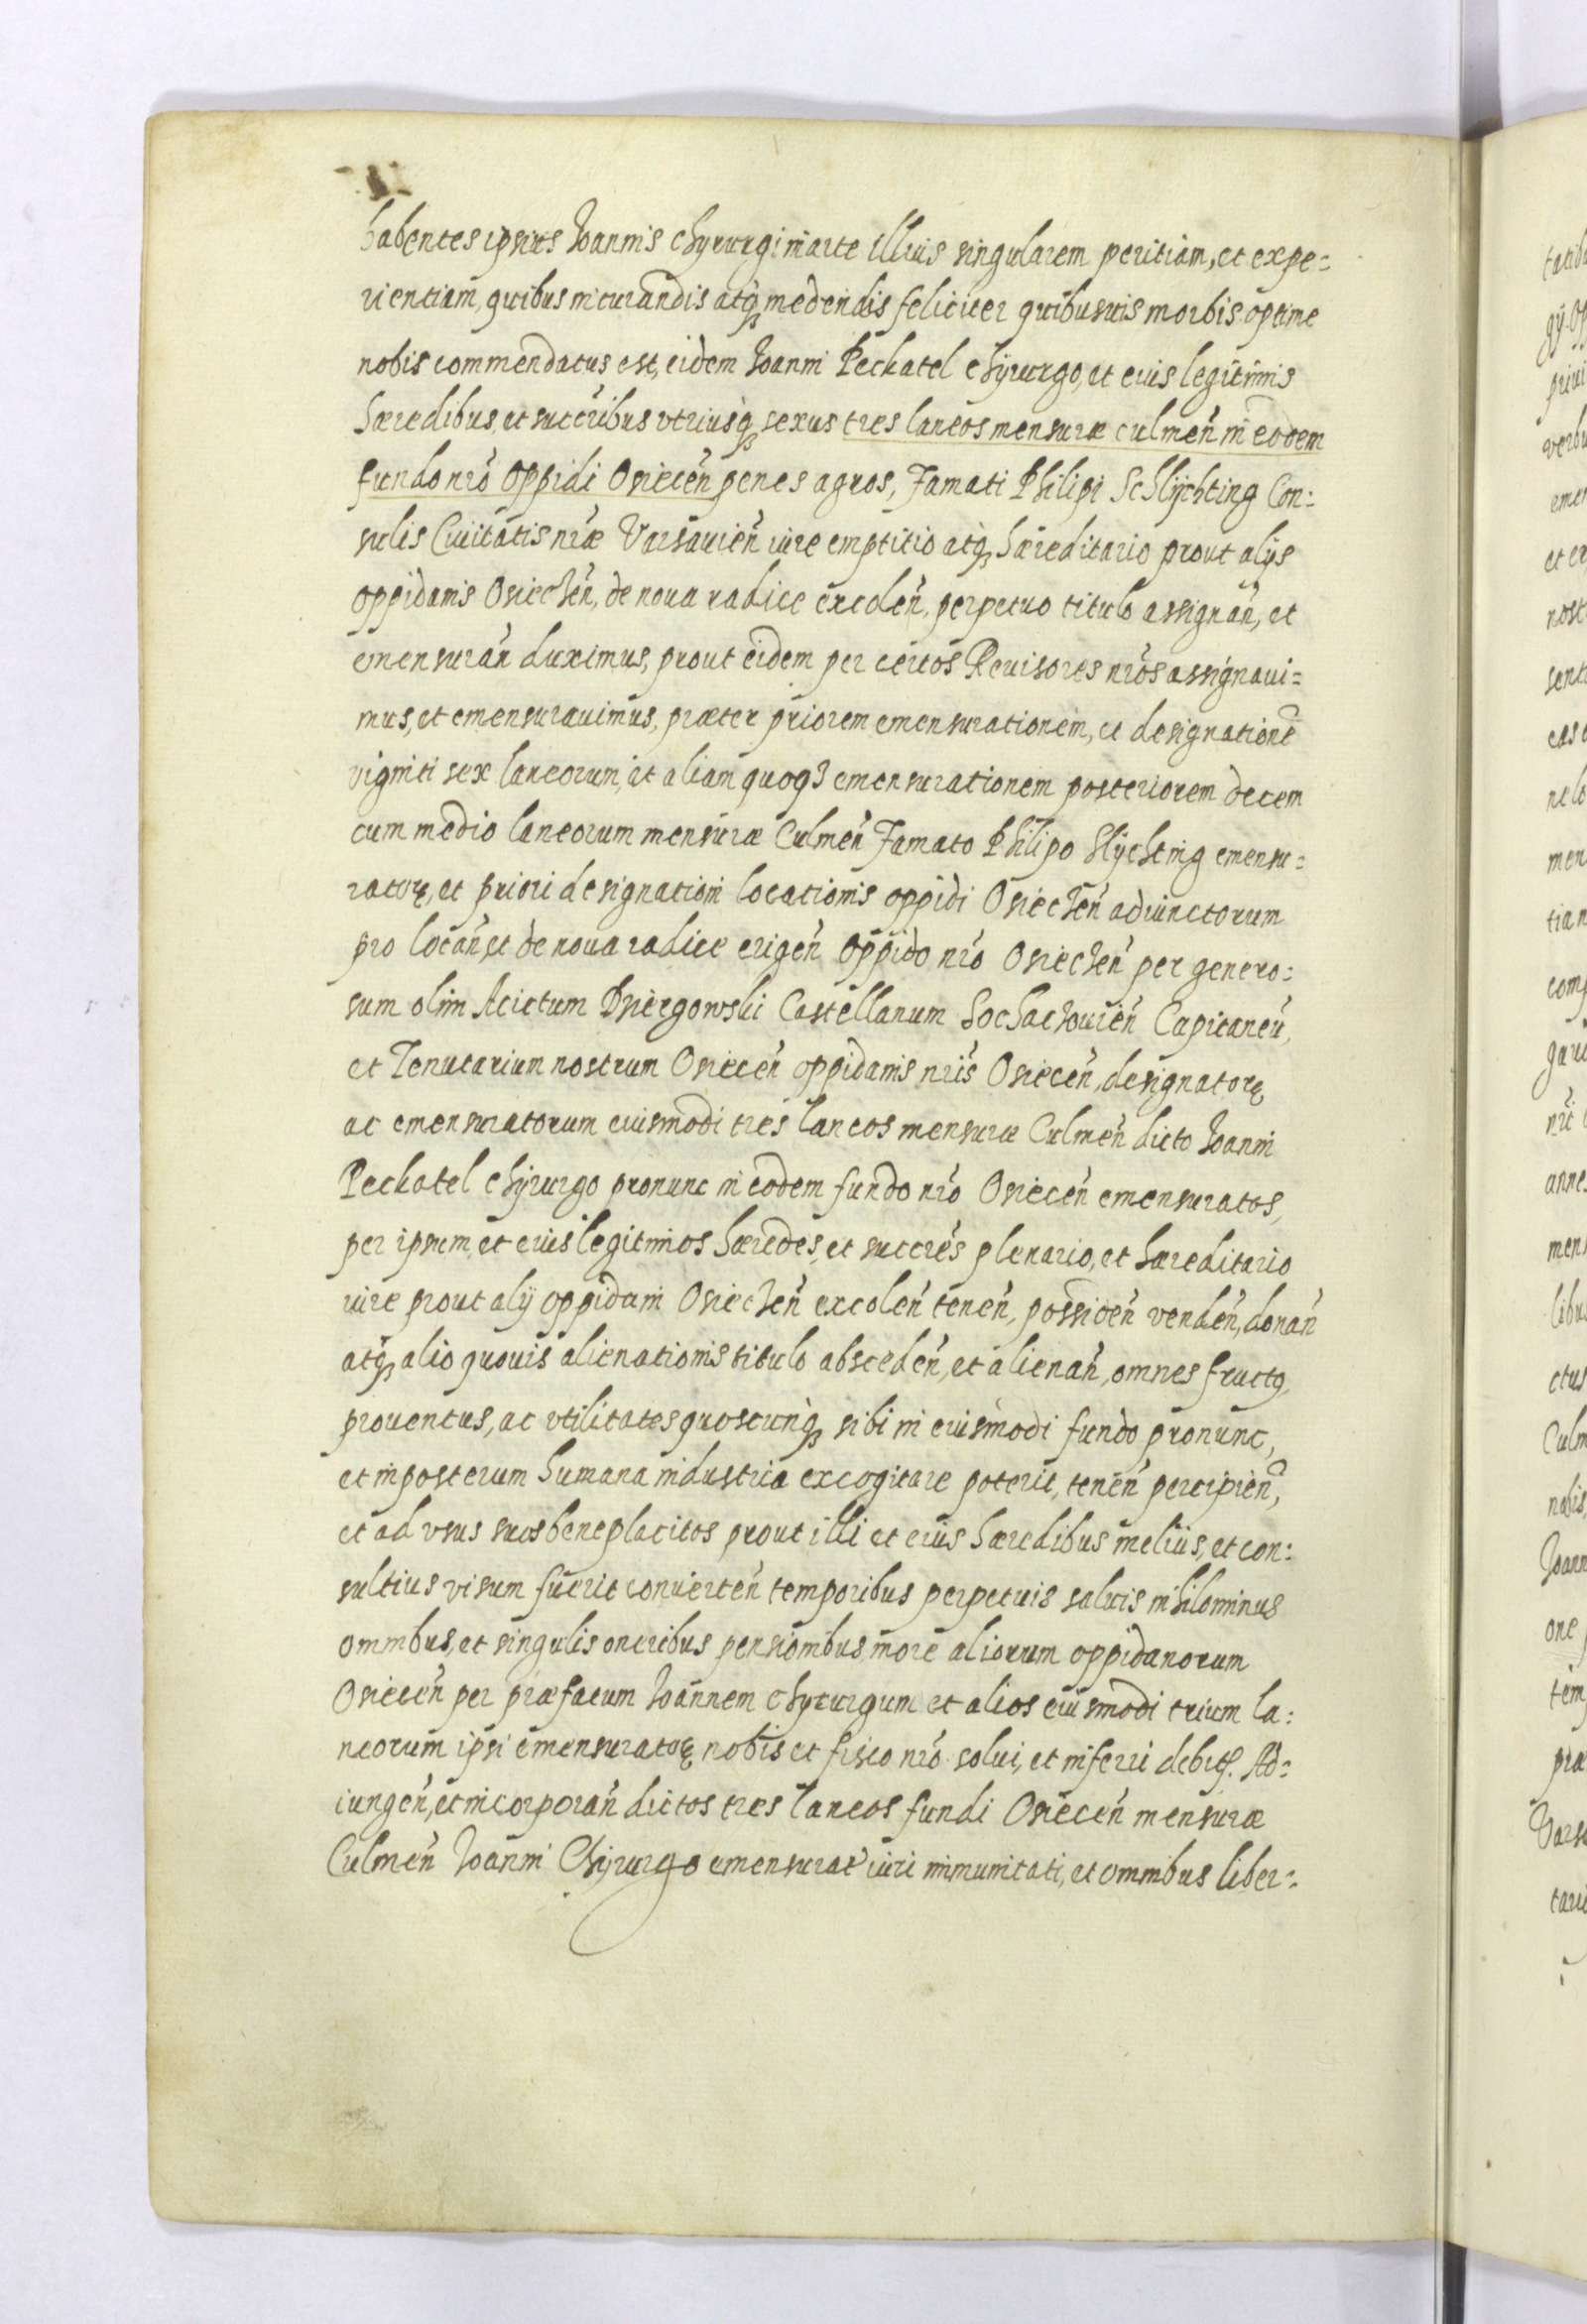 habentes ipsius Joannis chyrurgi in arte illius singularem peritiam, et expe=
rientiam, quibus in curandis atq₃ medendis feliciter quibusuis morbis optime
nobis commendatus est, eidem Joanni Peckatel chÿrurgo, et eius legitimis
hæredibus, et succribus vtriusq₃ sexus tres laneos mensuræ culmen̄ in eodem
fundo nr̄o Oppidi Osiecen̄ penes agros, Famati Philipi Schlÿchting Con:
sulis Ciuitatis nr̄æ Varsauien̄ iure emptitio atq₃ hæreditario prout alijs
oppidanis Osiechen̄, de noua radice exceden̄, perpetuo titulo assignan̄, et
emensuran̄ duximus, prout eidem per certos Reuisores nr̄os assignaui=
mus, et emensurauimus, præter priorem emensurationem, et designationē
viginti sex laneorum, et aliam quoq3 emensurationem posteriorem decem
cum medio laneorum mensuræ Culmen̄ Famato Philipo Slÿchting emensu=
ratorꝝ, et priori designationi locationis oppidi Osiechen̄ adiunctorum
pro locan̄ et de noua radice erigen̄ Oppido nr̄o Osiechen̄ per genero:
sum olim Acictum Dsiergowski Castellanum Sochachouien̄ Capitaneū,
et Tenutarium nostrum Osiecen̄ oppidanis nr̄is Osiecen̄, designatorꝝ
ac emensuratorum euismodi tres laneos mensuræ Culmen̄ dicto Joanni
Peckatel chÿrurgo pronunc in eodem fundo nr̄o Osiecen̄ emensuratos,
per ipsum, et eius legitimos hæredes, et succres plenario, et hæreditario
iure prout alij oppidani Osiechen̄ excolen̄ tenen̄, possiden̄ venden̄, donan̄
atq₃ alio quouis alienationis titulo absceden̄, et alienan̄, omnes fructꝯ,
prouentus, ac vtilitates quoscunq₃ sibi in eiusmodi fundo pronunc,
et in posterum humana industria excogitare poterit, tenen̄ percipien̄,
et ad vsus suos beneplacitos prout illi et eius hæredibus melius, et con:
sultius visum fuerit conuerten̄ temporibus perpetuis saluis nihilominus
omnibus, et singulis oneribus pensionibus more aliorum oppidanorum
Osiecen̄ per præfatum Joannem Chyrurgum et alios euismodi trium la:
neorum ipsi emensuratorꝝ nobis et fisco nr̄o solui, et inferri debitꝭ. Ad=
iungen̄, et incorporan̄ dictos tres laneos fundi Osiecen̄ mensuræ
Culmen̄ Joanni Chÿrurgo emensurat̄ iuri immunitati, et omnibus liber=